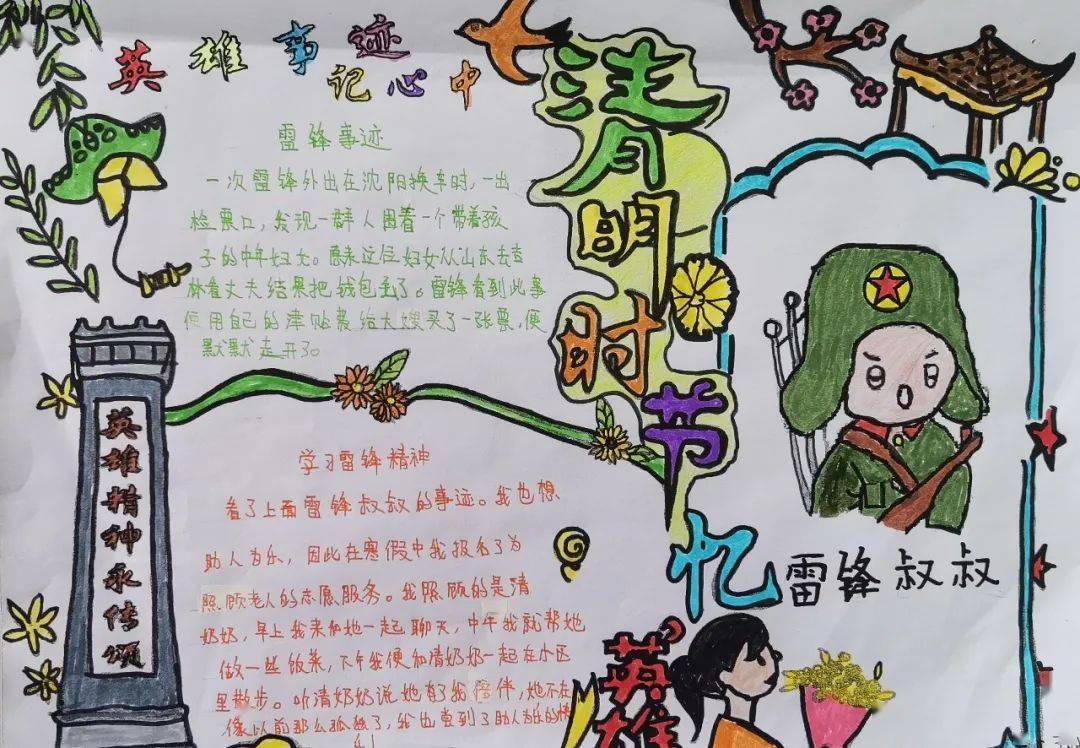 英雄事迹
记心中
清明时节
忆
英雄
雷锋事迹
一次雷锋外出在沈阳换车时，一出
检票口，发现一群人围着一个带着孩
子的中年妇女。原来这位妇女从山东去吉
林看丈夫结果把钱包丢了。雷锋看到此事
便用自己的津贴费给大嫂买了一张票，便
默默走开了。
英雄精神永传颂
学习雷锋精神
看了上面雷锋叔叔的事迹。我也想
助人为乐，因此在寒假中我报名了为
照顾老人的志愿服务。我照顾的是清
奶奶，早上我来和她一起聊天，中午我就帮她
做一些饭菜，下午我便和清奶奶一起在小区
里散步。听清奶奶说她有了我陪伴，她不在
像以前那么孤独了，我也意到了助人为乐的
雷锋叔叔